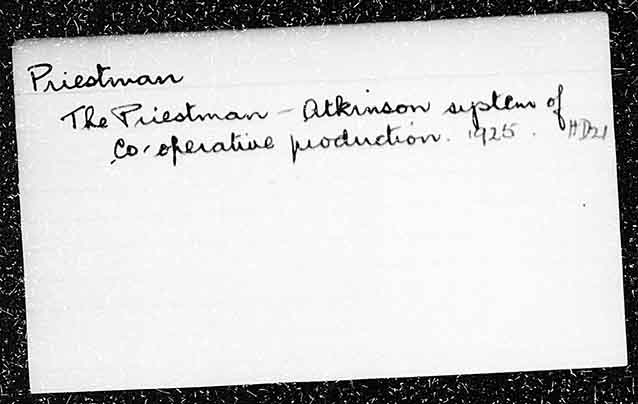 Priestman
The Priestman - Atkinson system of
Co-operative production. 1925. HD21